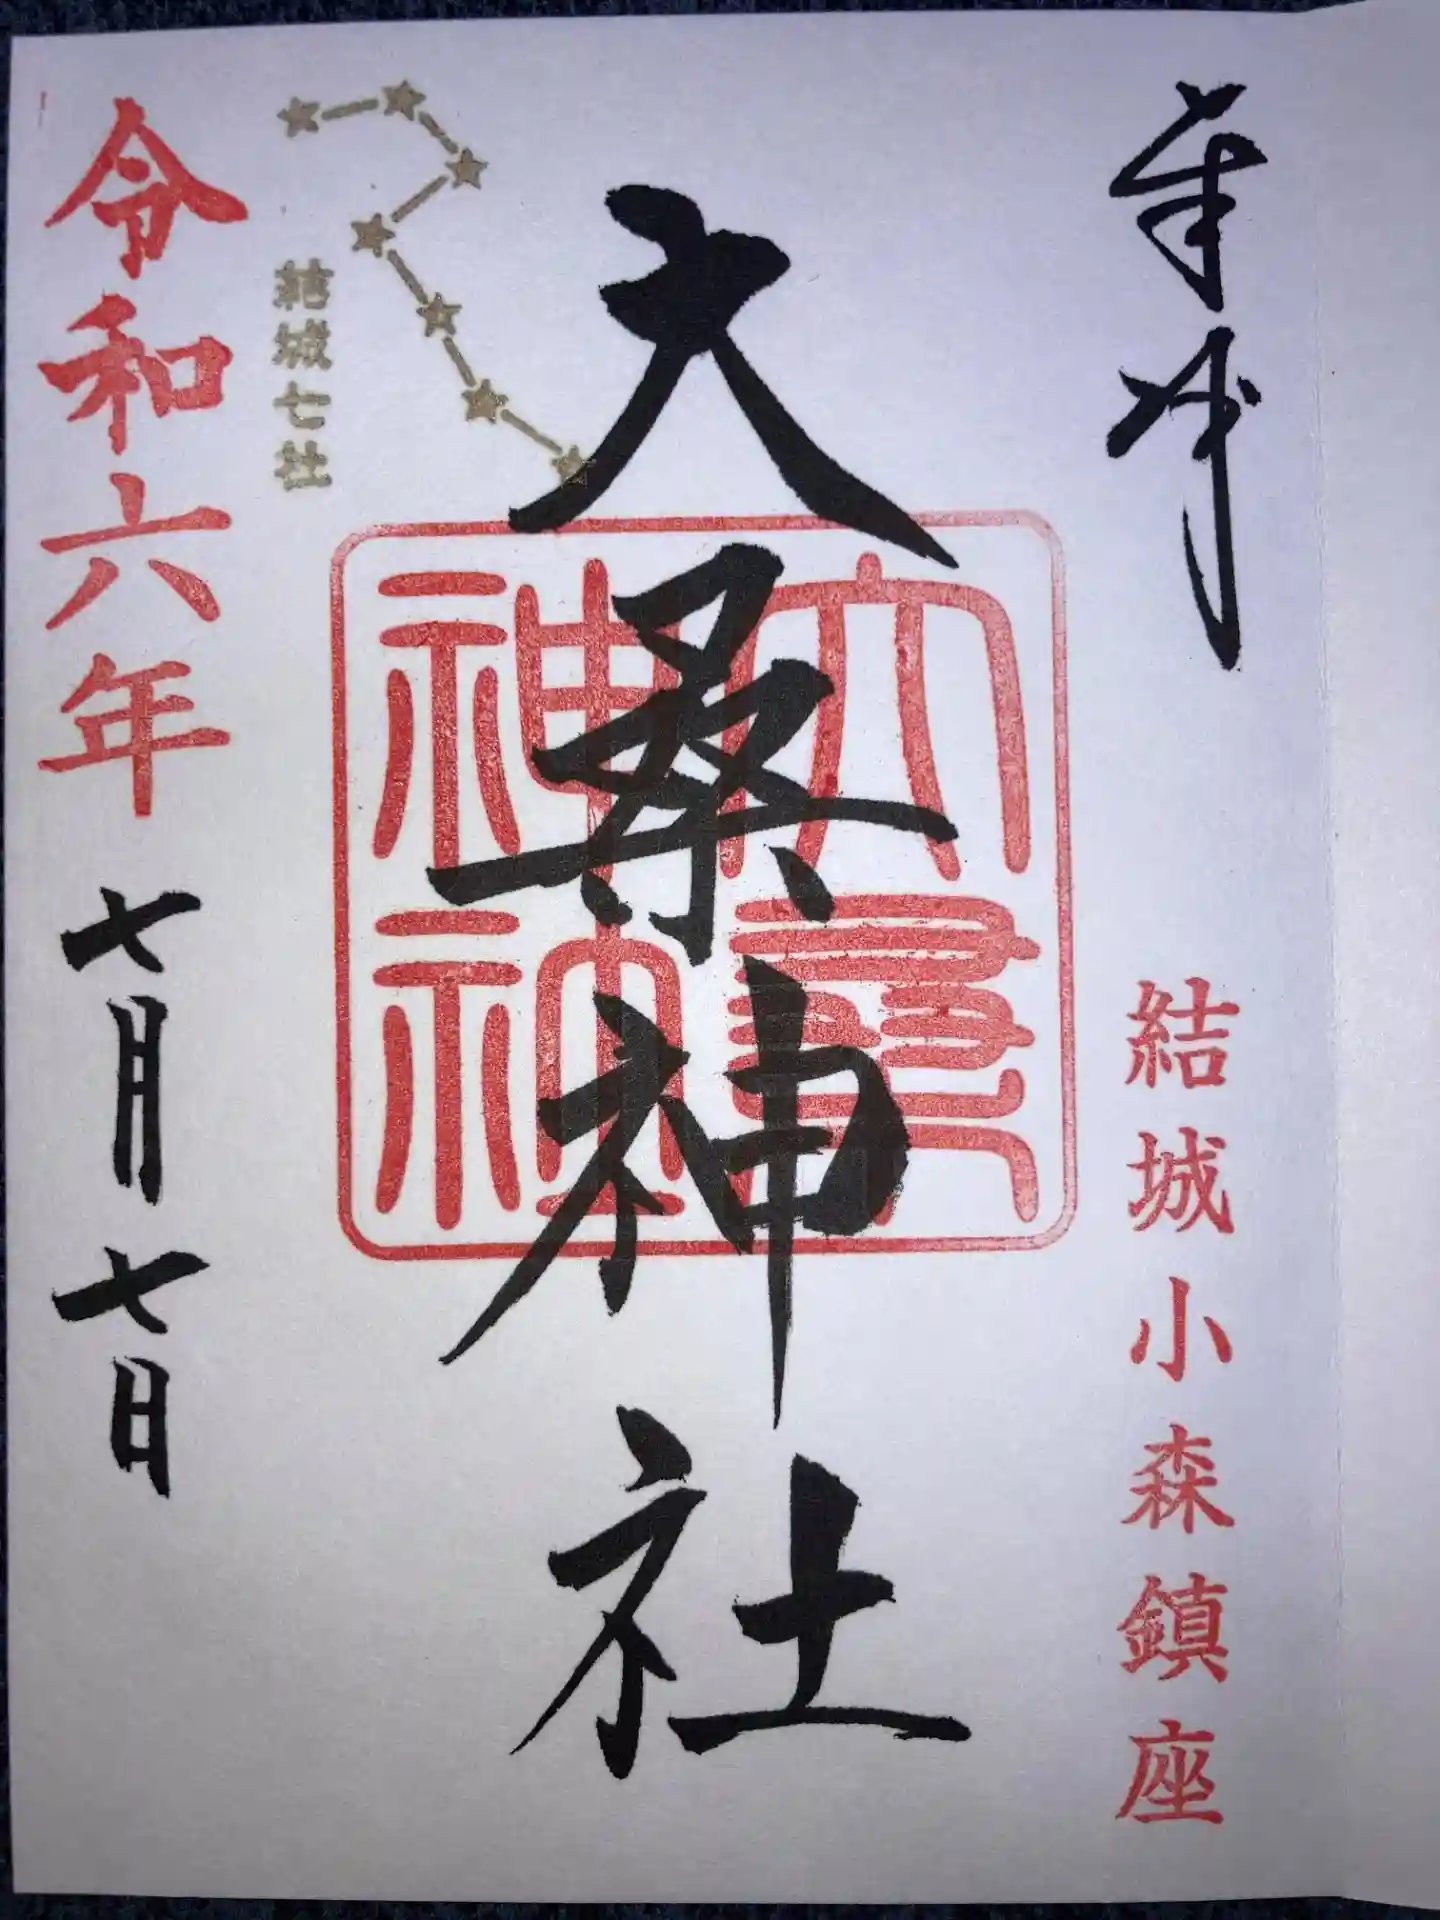 奉拝
結城小森鎮座
大桑神社
大桑神社
結城七社
令和六年七月七日